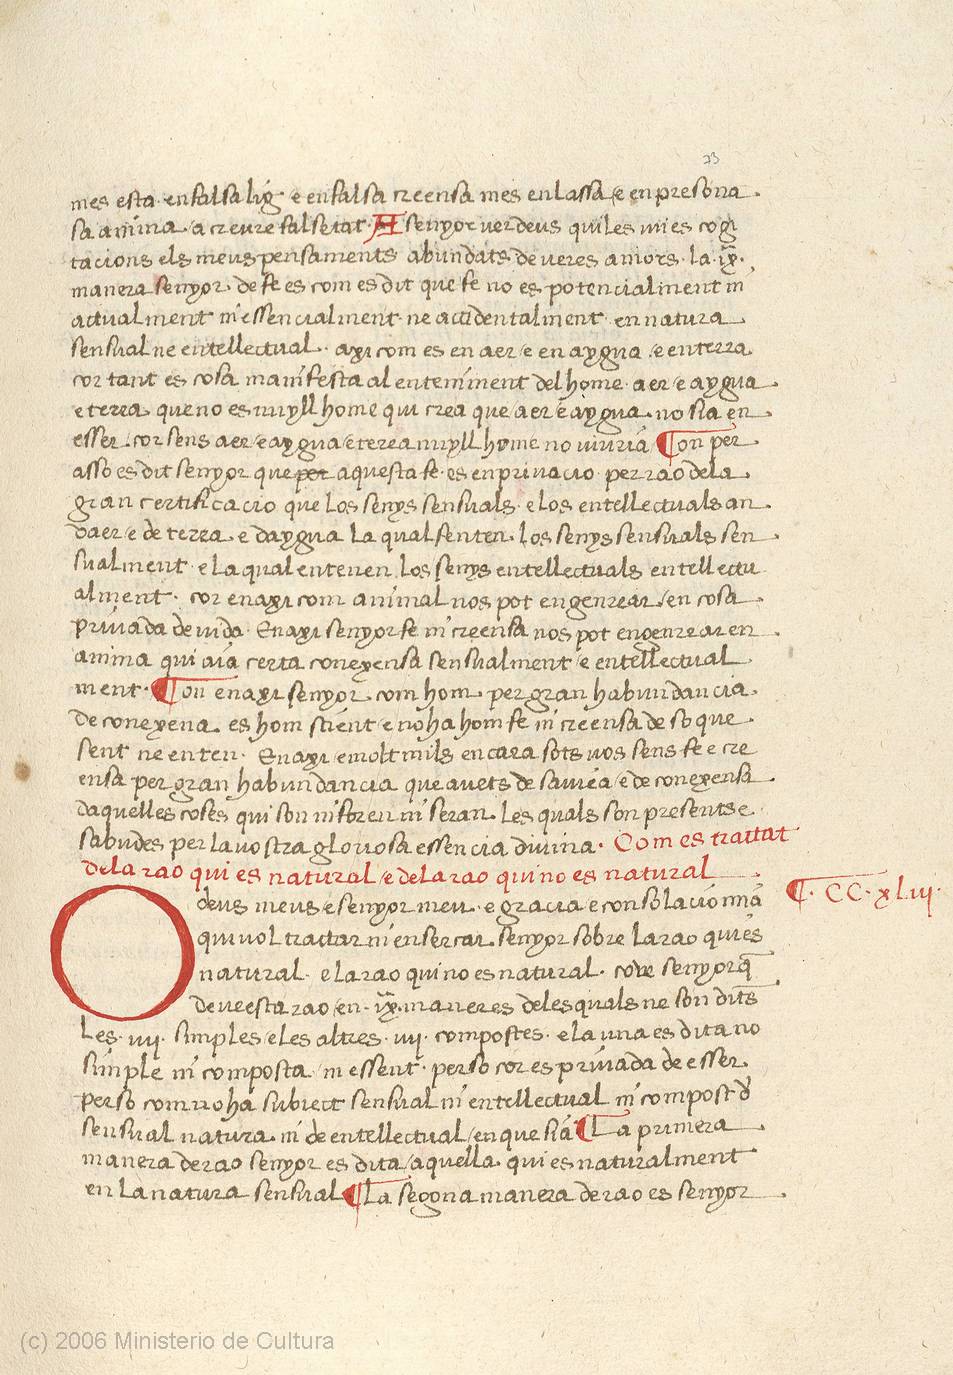 23
mes esta en falsa lig e en falsa creensa mes en lassa e en presona
sa anima a creure falsetat A senyor ver deus qui les mies cogi
tacions els meus pensaments abundats de veres amors · la · ix̃ ·
manera senyor · de fe es com es dit que fe no es potencialment ni
actualment ni essencialment · ne accidentalment · en natura
sensual ne entellectual · axi com es en aer e en aygua e en terra
cor tant es cosa manifesta al enteniment del home · aer e aygua
e terra que no es nuyll home qui crea que aer e aygua no sia en
esser · cor sens aer e aygua e terra nuyll home no viuria ¶ On per
asso es dit senyor que per aquesta fe · es en priuacio · per rao dela
gran certificacio que los senys sensuals · e los entellectuals an
daer e de terra e daygua la qual senten los senys sensuals sen
sualment · e la qual entenen los senys entellectuals entellectu
alment · cor enaxi com animal nos pot engenrrar en cosa
priuada de uida · Enaxi senyor fe ni creensa nos pot engenrrar en
anima qui aia certa conexensa sensualment e entellectual
ment · ¶ On enaxi senyor com hom per gran habundancia
de conexena es hom scient e no ha hom fe ni creensa de so que
sent ne enten · Enaxi e molt mils encara sots vos sens fe e cre
ensa per gran habundancia que auets de sauiea e de conexensa
daquelles coses qui son ni foren ni seran les quals son presents e
sabudes per la vostra gloriosa essencia diuina · Com es tractat
dela rao qui es natural e dela rao qui no es natural
¶ · CC · xliij ·
O deus meus e senyor meu · e gracia e consolacio mia
qui vol tractar ni ensercar senyor sobre la rao qui es
natural · e la rao qui no es natural · cove senyor q̃
deveesta rao en · ix̃ · maneres deles quals ne son dits
les · iiij · simples e les altres · iiij · compostes · e la una es dita no
simple ni composta ni essent · perso cor es priuada de esser
perso com no ha subiect sensual ni entellectual ni compost d̃
sensual natura ni de entellectual en que sia ¶ La primera
manera de rao senyor es dita aquella qui es naturalment
en la natura sensual ¶ La segona manera de rao es senyor
(c) 2006 Ministerio de Cultura